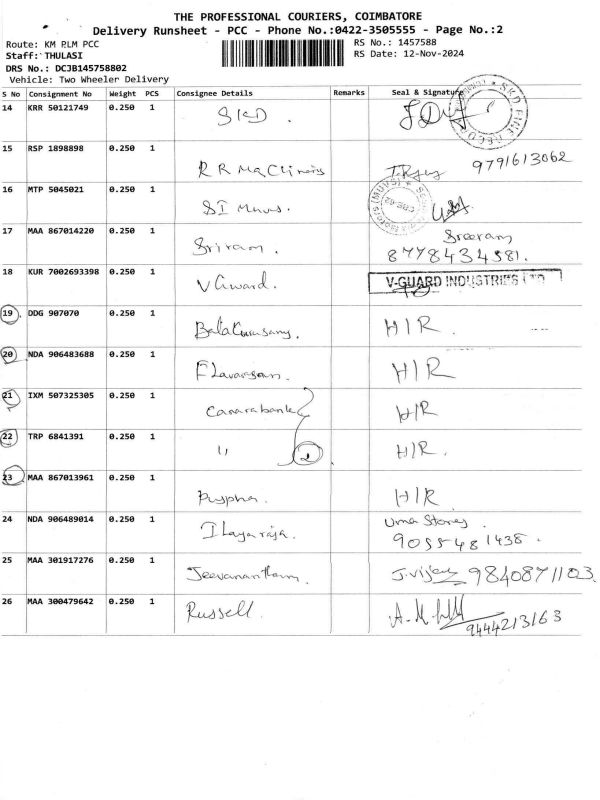 THE PROFESSIONAL COURIERS, COIMBATORE
Delivery Runsheet - PCC - Phone No.:0422-3505555 - Page No.:2
Route: KM RLM PCC
RS No.: 1457588
Staff: THULASI
RS Date: 12-Nov-2024
DRS No.: DCJB145758802
Vehicle: Two Wheeler Delivery
S No Consignment No Weight PCS Consignee Details Remarks Seal & Signature
14 KRR 50121749 0.250 1 SKD
15 RSP 1898898 0.250 1 R R 9791613062
16 MTP 5045021 0.250 1 SI
17 MAA 867014220 0.250 1 Sriram. Sreeram
8778434581.
18 KUR 7002693398 0.250 1 V Guard. V-GUARD INDUSTRIES LTD
19 DDG 907070 0.250 1 H/R.
20 NDA 906483688 0.250 1 Elavarasan. H/R
21 IXM 507325305 0.250 1 Canarabank H/R
22 TRP 6841391 0.250 1 " 2 H/R.
23 MAA 867013961 0.250 1 Puspha. H/R
24 NDA 906489014 0.250 1 Ilayaraja. Uma Stores.
9055481438.
25 MAA 301917276 0.250 1 Jeevanantham. J. Vijay 9840871103.
26 MAA 300479642 0.250 1 Russell.
9444213163